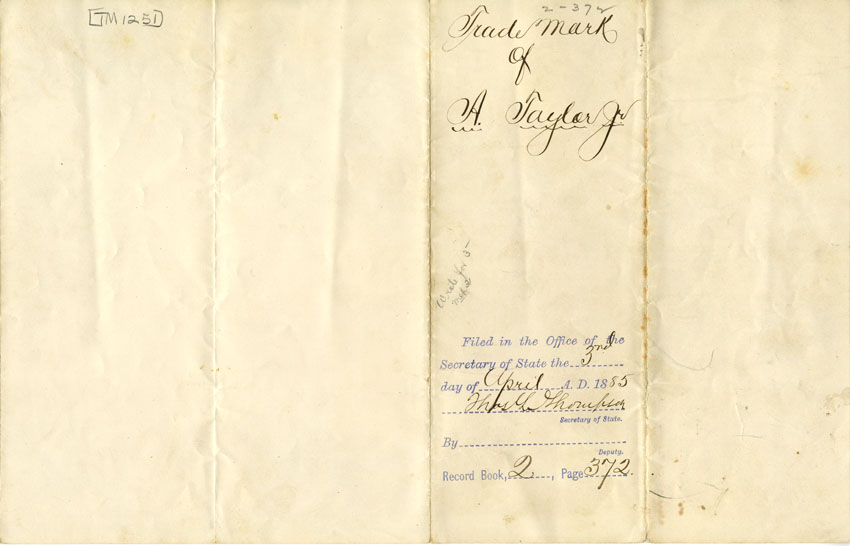 TM 1251
2-372
Trade Mark
of
A. Taylor Jr
Filed in the Office of the
Secretary of State the 3rd
day of April A. D. 1885
Thos. L. Thompson
Secretary of State.
By
Deputy.
Record Book, 2, Page 372.